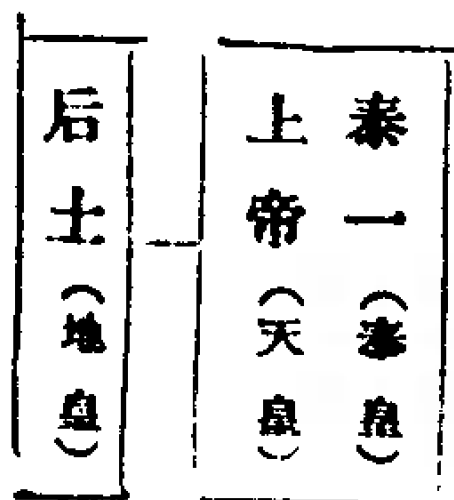 泰一（泰皇）
上帝（天皇）
后土（地皇）